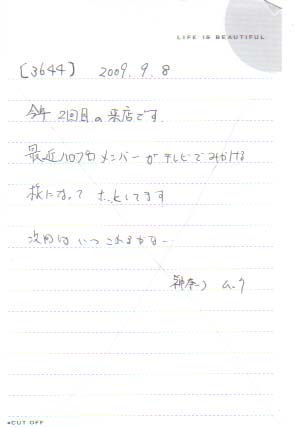 LIFE IS BEAUTIFUL
[3644] 2009.9.8
今年2回目の来店です.
最近ハロプロメンバーがテレビでみかける
様になって ホッとしてます
次回は いつ これるかなー
CUT OFF